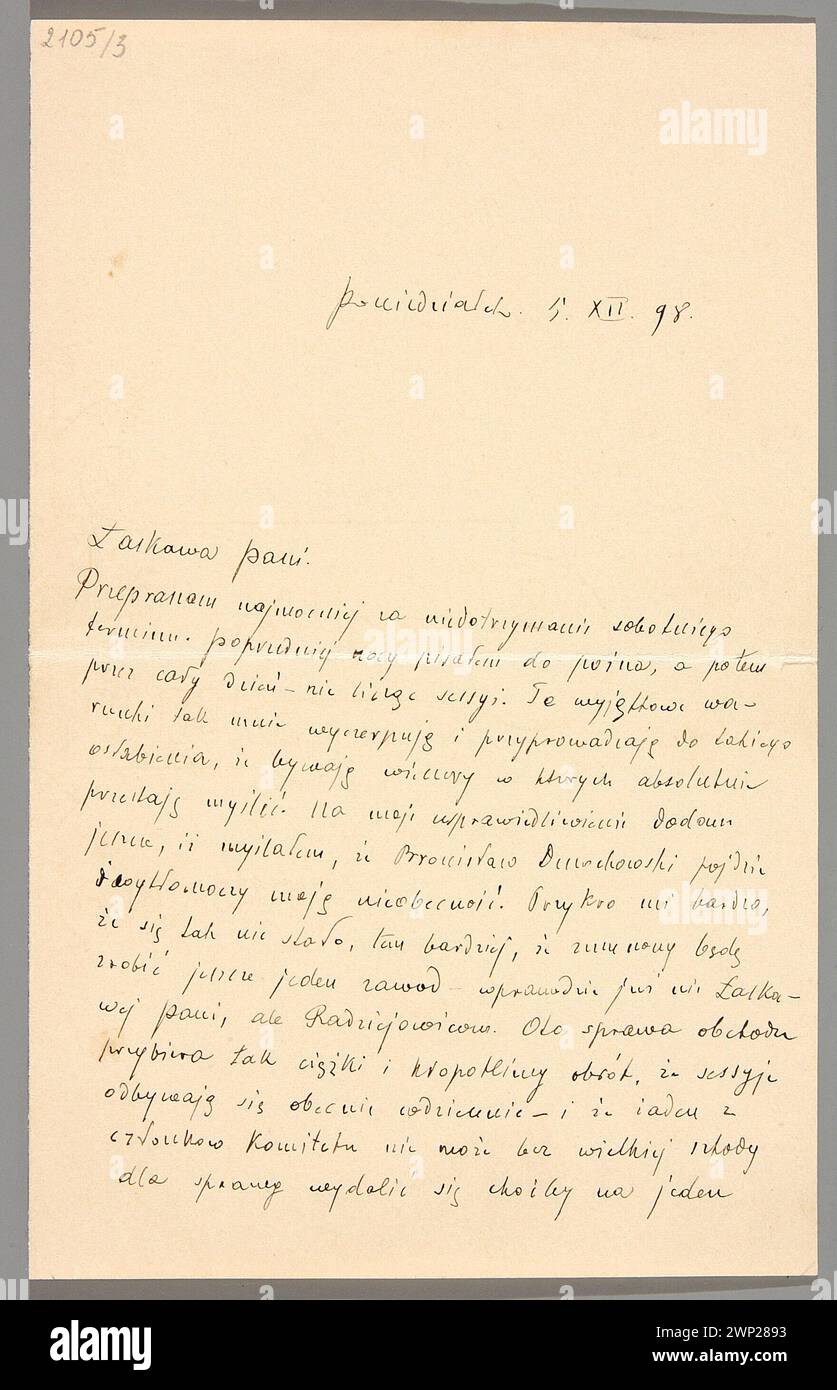 2105/3
Poniedziałek. 5. XII. 98.
Łaskawa Pani.
Przepraszam najmocniej za niedotrzymanie sobotniego
terminu. Poprzedniej nocy pisałem do późna, a potem
przez cały dzień – nie licząc sessyi. Te wyjątkowe wa-
runki tak mnie wyczerpują i przyprowadzają do takiego
osłabienia, że bywają wieczory w których absolutnie
przestaję myśleć. Na moje usprawiedliwienie dodam
jeszcze, iż myślałem, że Bronisław Dembowski pójdzie
i wytłomaczy moją nieobecność. Przykro mi bardzo,
że się tak nie stało, tem bardziej, że zmuszony będę
zrobić jeszcze jeden zawód – wprawdzie już nie Łaska-
wej Pani, ale Radziejowicom. Oto sprawa obchodu
przybiera tak ciężki i kłopotliwy obrót, że sessyje
odbywają się obecnie codziennie – i że żaden z
członków Komitetu nie może bez wielkiej szkody
dla sprawy wydalić się choćby na jeden
alamy
a
alamy
Image ID: 2WP2893
www.alamy.com